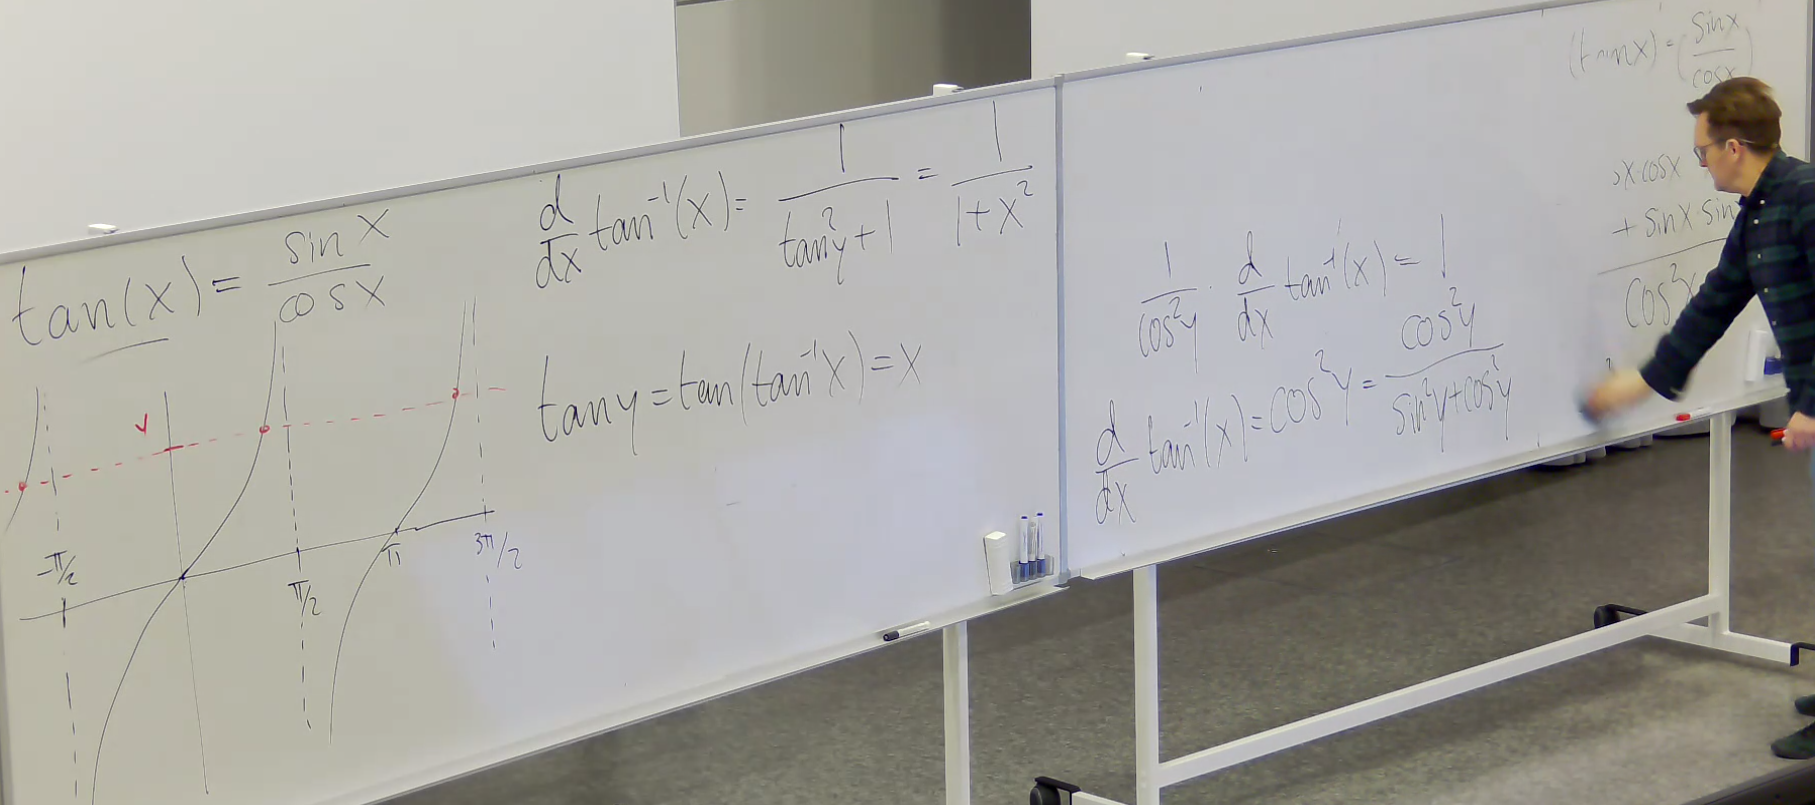 tan(x) = sin x / cos x
y
-π/2
π/2
π
3π/2
d/dx tan⁻¹(x) = 1/(tan²y + 1) = 1/(1 + x²)
tan y = tan(tan⁻¹x) = x
1/cos²y · d/dx tan⁻¹(x) = 1
d/dx tan⁻¹(x) = cos²y = cos²y/(sin²y + cos²y)
(tan x) = (sin x / cos x)
x·cosx
+ sin x · sin
cos²x